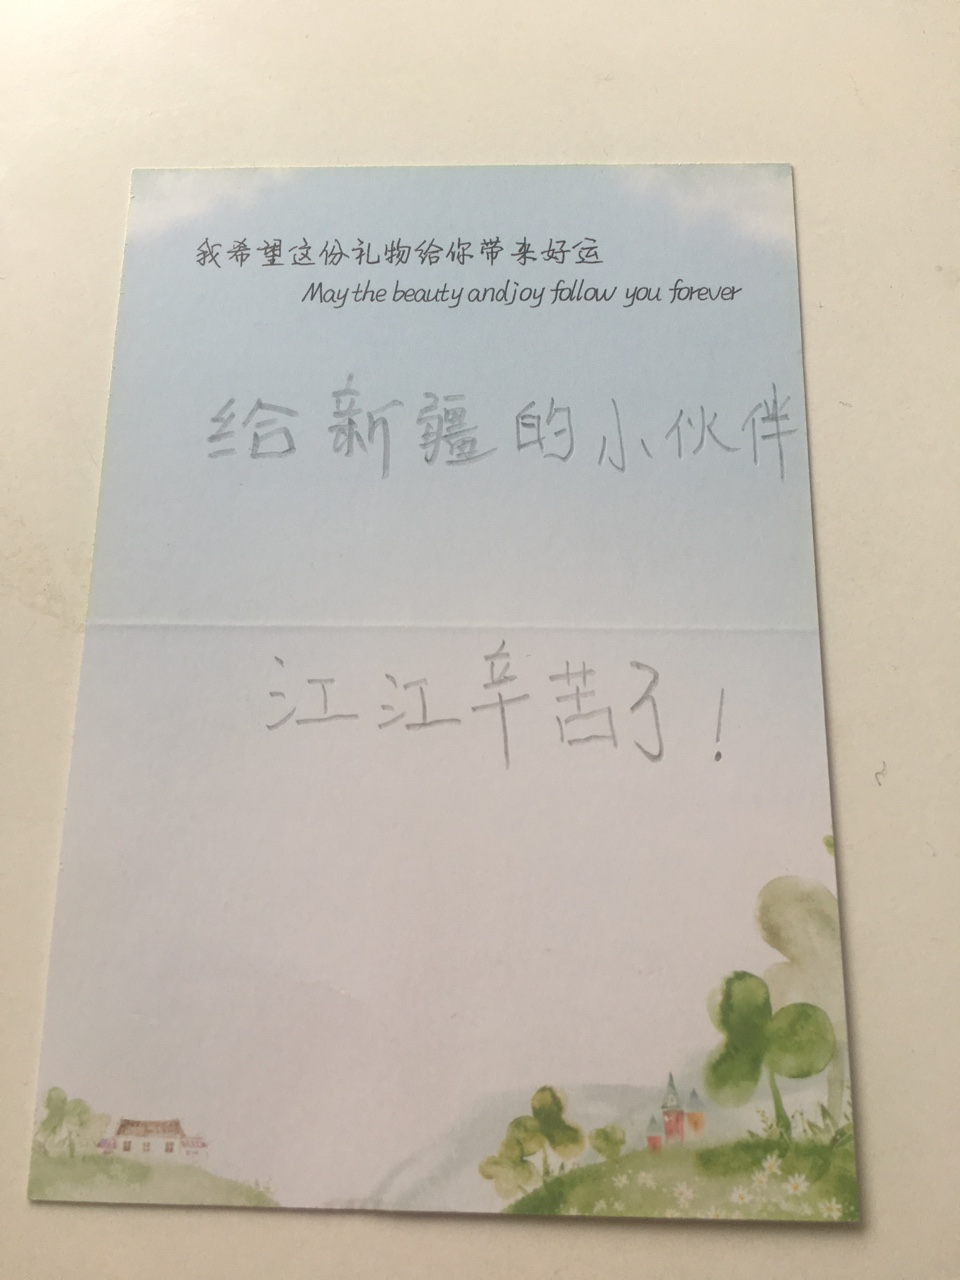 我希望这份礼物给你带来好运
May the beauty and joy follow you forever
给新疆的小伙伴
江江辛苦了！